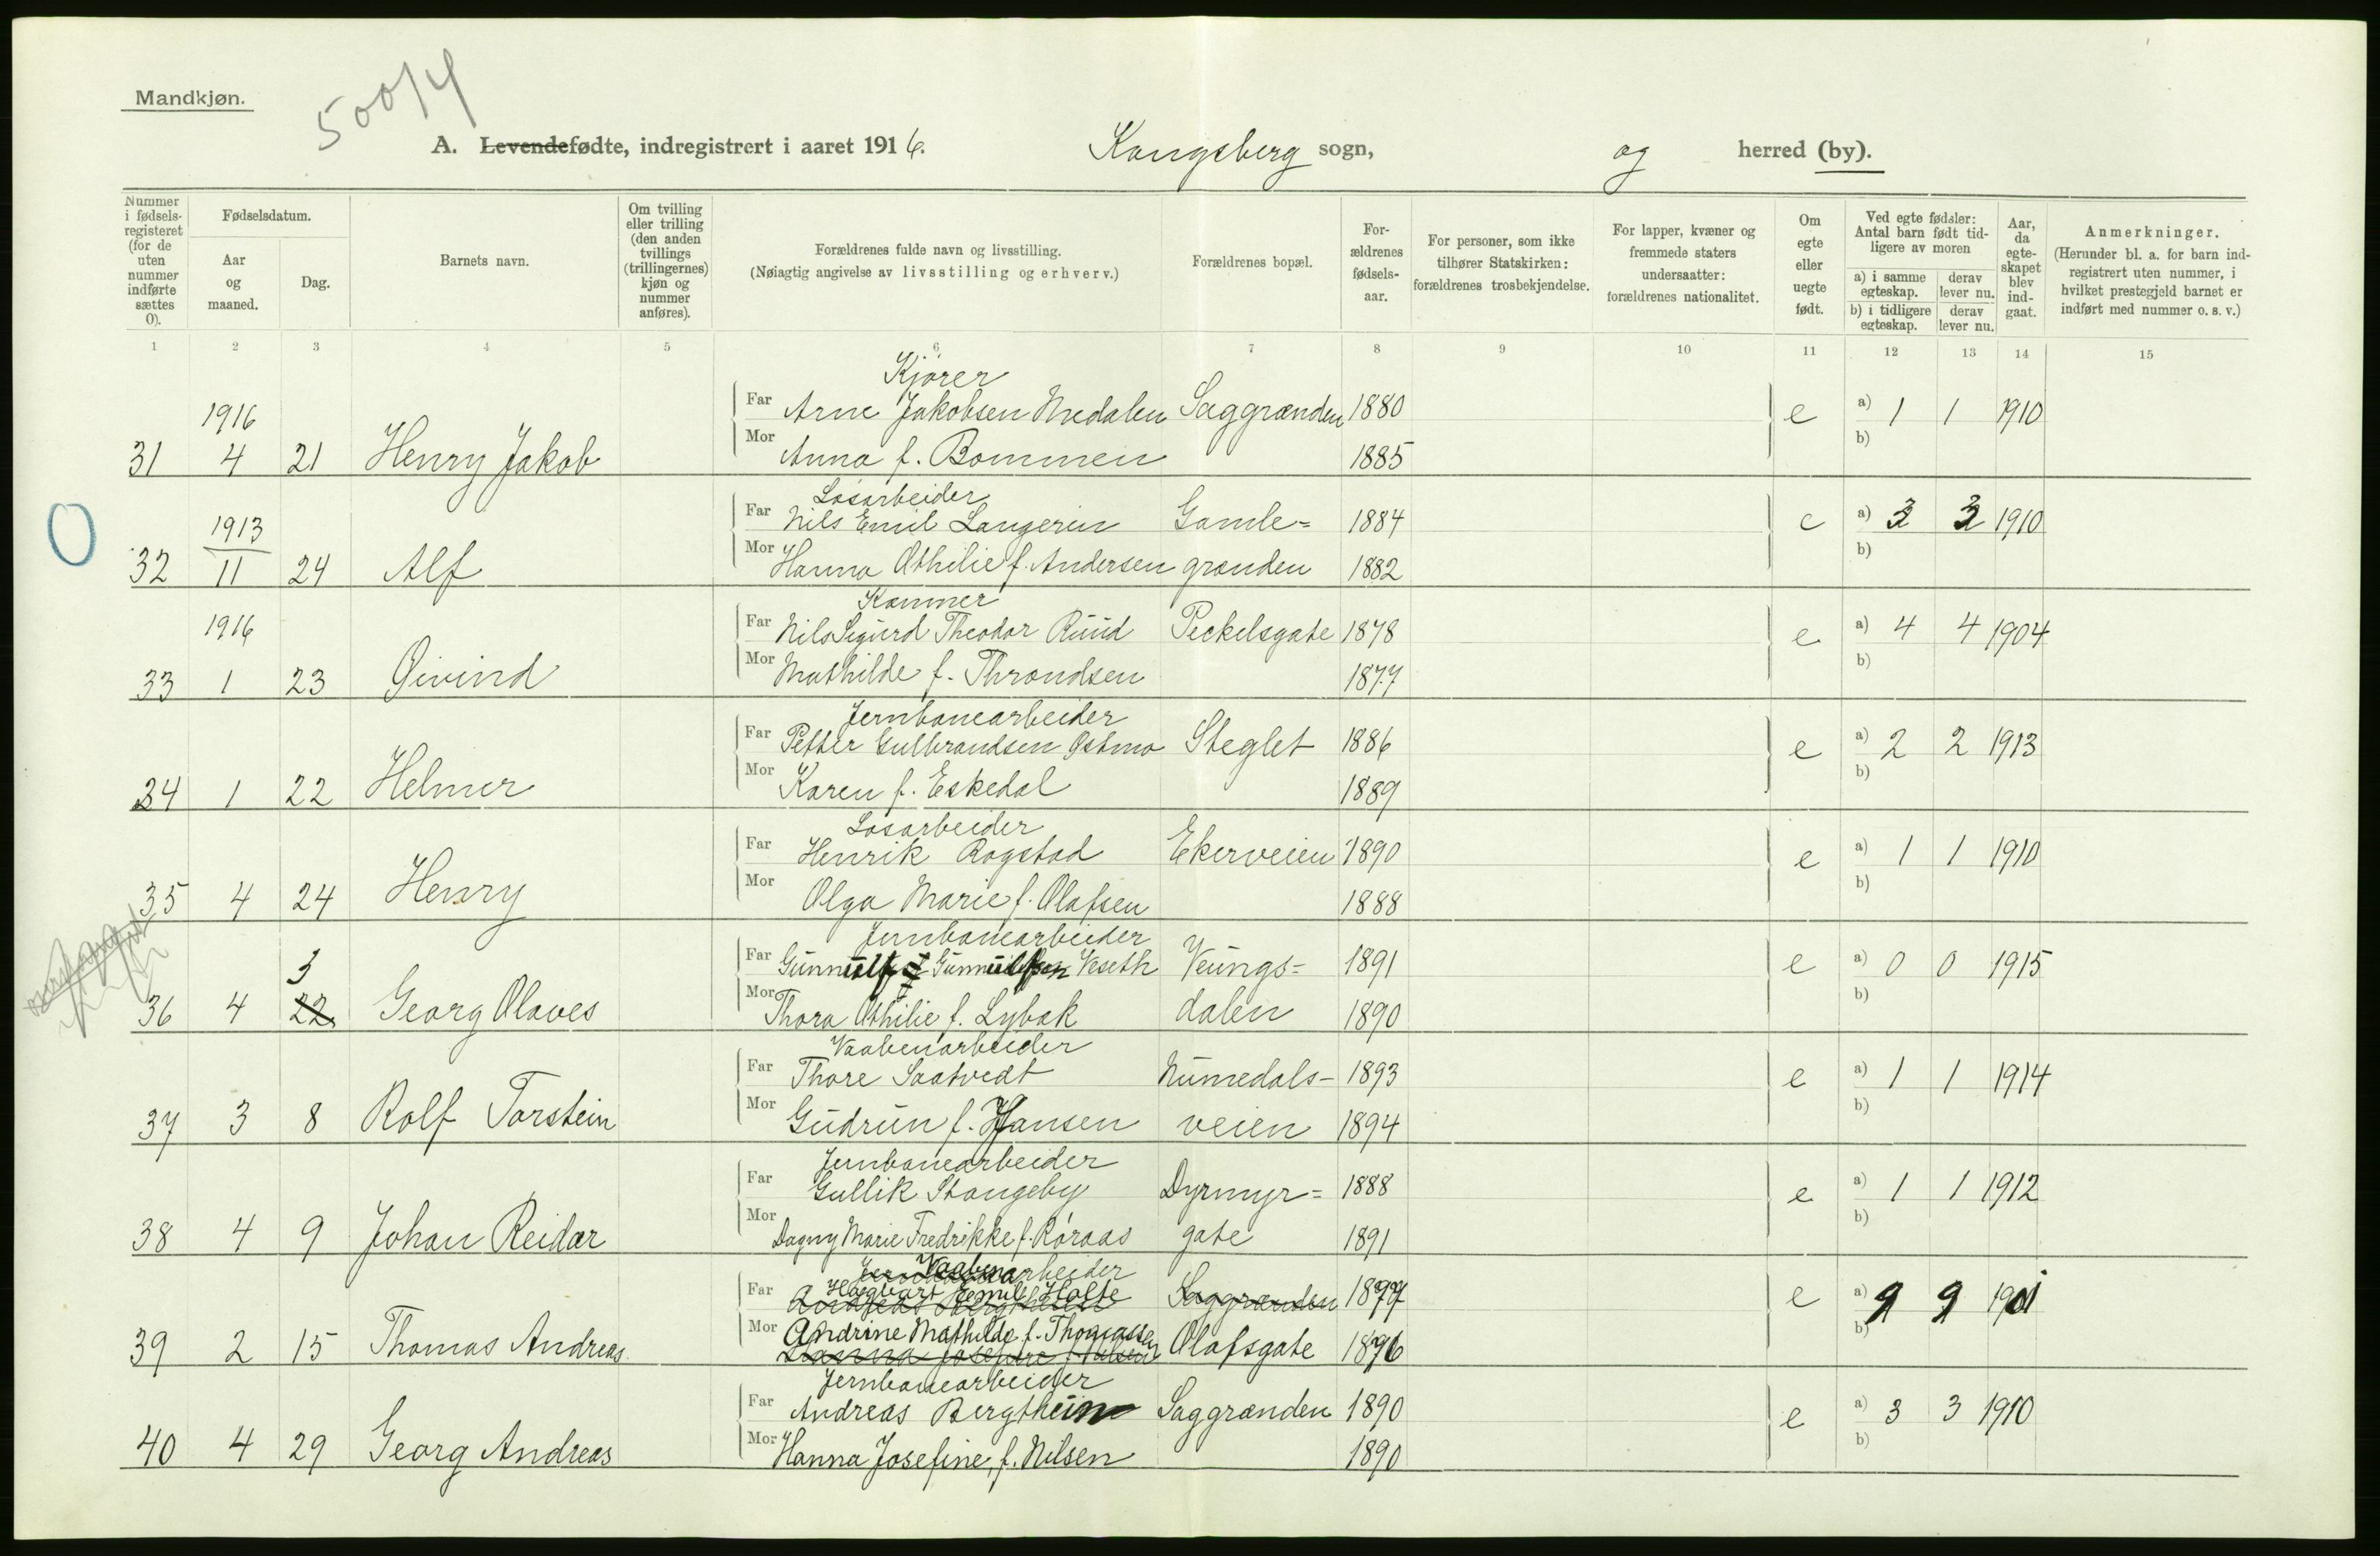 Mandkjøn.
500/4
A. Levendefødte, indregistrert i aaret 1916. Kongsberg sogn, og herred (by).
Nummer i fødselsregisteret (for de uten nummer indførte sættes 0).
Fødselsdatum.
Aar og maaned.
Dag.
Barnets navn.
Om tvilling eller trilling (den anden tvillings (trillingernes) kjøn og nummer anføres).
Forældrenes fulde navn og livsstilling.
(Nøiagtig angivelse av livsstilling og erhverv.)
Forældrenes bopæl.
Forældrenes fødselsaar.
For personer, som ikke tilhører Statskirken: forældrenes trosbekjendelse.
For lapper, kvæner og fremmede staters undersaatter: forældrenes nationalitet.
Om egte eller uegte født.
Ved egte fødsler: Antal barn født tidligere av moren
a) i samme egteskap. derav lever nu.
b) i tidligere egteskap. derav lever nu.
Aar, da egteskapet blev indgaat.
Anmerkninger.
(Herunder bl. a. for barn indregistrert uten nummer, i hvilket prestegjeld barnet er indført med nummer o. s. v.)
1 2 3 4 5 6 7 8 9 10 11 12 13 14 15
Kjører
1916 Far Arne Jakobsen Medalen Saggrænden 1880 e a) 1 1 1910
31 4 21 Henry Jakob Mor Anna f. Bommen 1885 b)
Løsarbeider
0 1913 Far Nils Emil Langerin Gamle= 1884 e a) 3 3 1910
32 11 24 Alf Mor Hanna Othilie f. Andersen grænden 1882 b)
1916 Far Nils Sigurd Theodor Ruud Peckelsgate 1878 e a) 4 4 1904
33 1 23 Øivind Mor Mathilde f. Throndsen 1877 b)
Jernbanearbeider
Far Petter Gulbrandsen Østmo Steglet 1886 e a) 2 2 1913
34 1 22 Helmer Mor Karen f. Eskedal 1889 b)
Løsarbeider
Far Henrik Rogstad Ekerveien 1890 e a) 1 1 1910
35 4 24 Henry Mor Olga Marie f. Olafsen 1888 b)
Jernbanearbeider
3 Far Gunnulf Gunnulfsen Veseth Veungs= 1891 e a) 0 0 1915
36 4 22 Georg Olaves Mor Thora Othilie f. Lybak dalen 1890 b)
Vaabenarbeider
Far Thore Saatvedt Numedals- 1893 e a) 1 1 1914
37 3 8 Rolf Torstein Mor Gudrun f. Hansen veien 1894 b)
Jernbanearbeider
Far Gullik Stangeby Dyrmyr= 1888 e a) 1 1 1912
38 4 9 Johan Reidar Mor Dagny Marie Fredrikke f. Røraas gate 1891 b)
Vaabenarbeider
Far Hagbart Emil Holte Saggrænden 1877 e a) 9 9 1901
39 2 15 Thomas Andreas Mor Andrine Mathilde f. Thomassen Olafsgate 1876 b)
Hanna Josefine f. Nilsen
Jernbanearbeider
Far Andreas Bergthein Saggrænden 1890 e a) 3 3 1910
40 4 29 Georg Andreas Mor Hanna Josefine, f. Nilsen 1890 b)